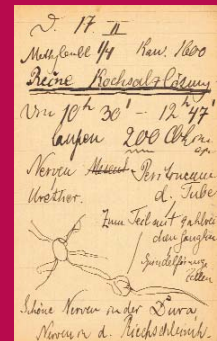 D. 17. II
Methylenbl 1/4 Kan. 1600
Reine Kochsalzlösung
Von 10h 30' – 12h 47'
laufen 200 Cbm
Nerven Peritoneum
Urether. d. Tube
Zum Teil mit zahlrei
chen
Spindelförmig
Zellen
Schöne Nerven in der Dura
Nerven in d. Riechschleimh.